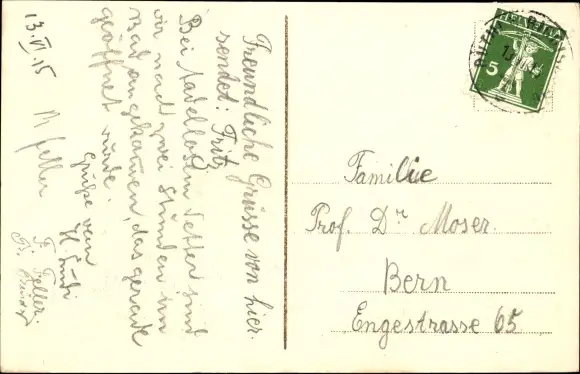 13.VI.15
Freundliche Grüsse von hier.
sendet: Fritz
Bei tadellosem Wetter sind
wir nach zwei Stunden im
Bad angekommen, das gerade
geöffnet wurde.
Grüße von
F. Feller.
M Feller
HELVETIA
5
Familie
Prof. Dr Moser.
Bern
Engestrasse 65